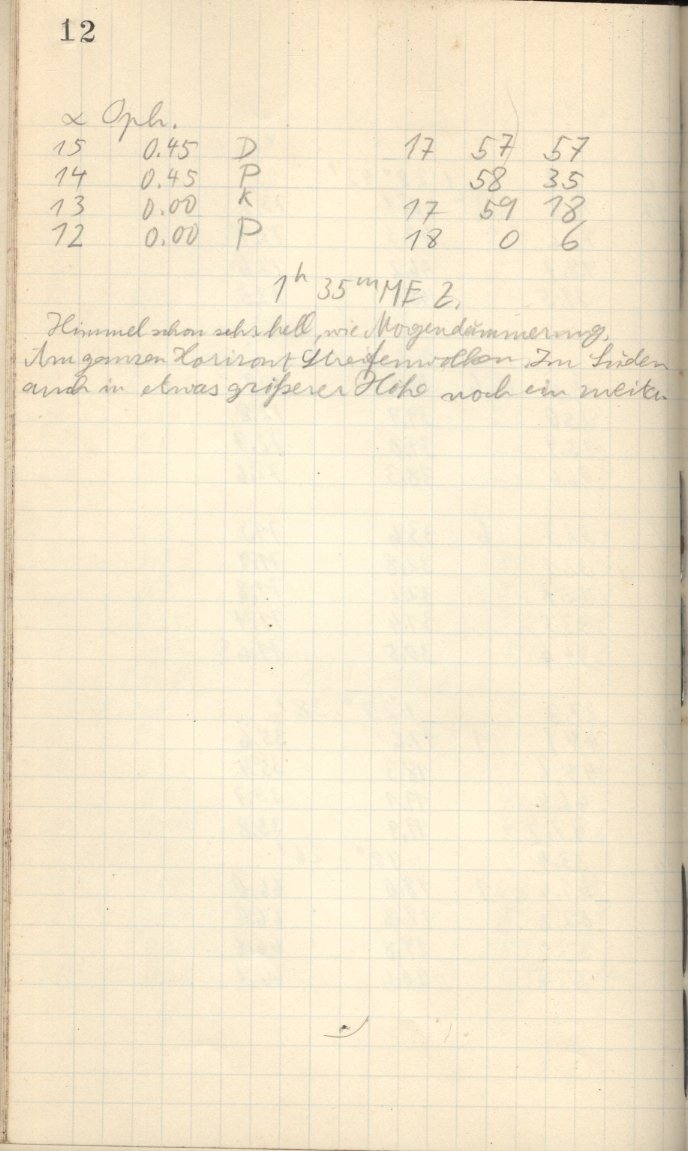 12
α Oph.
15 0.45 D 17 57 57
14 0.45 P 58 35
13 0.00 K 17 59 18
12 0.00 P 18 0 6
1h 35m MEZ.
Himmel schon sehr hell, wie Morgendämmerung.
Am ganzen Horizont Streifenwolken. Im Süden
auch in etwas größerer Höhe noch ein